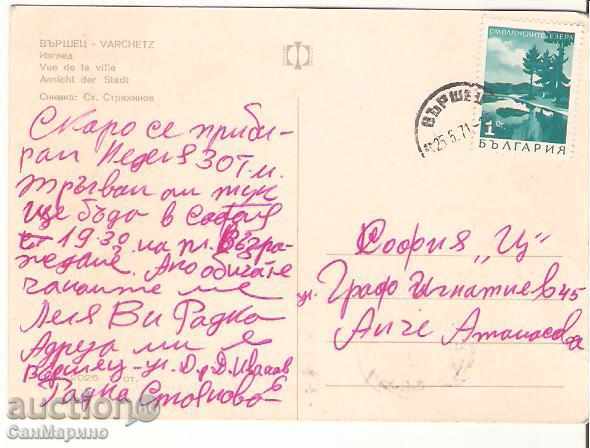 ВЪРШЕЦ - VARCHETZ
Изглед
Vue de la ville
Ansicht der Stadt
Снимка: Ст. Страхинов
СМОЛЯНСКИТЕ ЕЗЕРА
1 ст.
БЪЛГАРИЯ
ВЪРШЕЦ
25.5.71
Скоро се приби-
рам Неделя 30 т.м.
тръгвам от тук
ще бъда в София
от 19.30 на пл. Възра-
ждане. Ако обичате
чакайте ме
Леля Ви Радка
Адреса ми е
Вършец - ул. Д-р Д. Иванов
Радка Стоянова
София "Ц"
ул. Граф Игнатиев 45
Анче Атанасова
auction
СанМарино